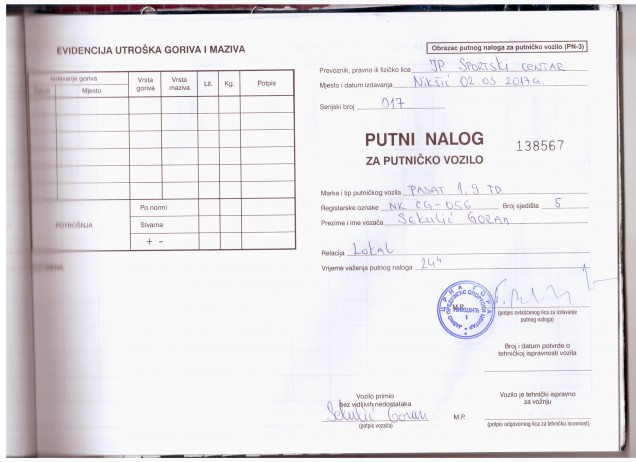 EVIDENCIJA UTROŠKA GORIVA I MAZIVA
Izdavanje goriva
Mjesto
Vrsta goriva
Vrsta maziva
Lit.
Kg.
Potpis
POTROŠNJA
Po normi
Stvarna
+ -
Obrazac putnog naloga za putničko vozilo (PN-3)
Prevoznik, pravno ili fizičko lice JP SPORTSKI CENTAR
Mjesto i datum izdavanja Nikšić 02.03.2017G.
Serijski broj 017
PUTNI NALOG
ZA PUTNIČKO VOZILO
138567
Marka i tip putničkog vozila PASAT 1,9 TD
Registarske oznake NK CG-056 Broj sjedišta 5
Prezime i ime vozača SEKULIĆ GORAN
Relacija LOKAL
Vrijeme važenja putnog naloga 24h
ЦРНА ГОРА
НИКШИЋ
1
M.P.
(potpis ovlašćenog lica za izdavanje
putnog naloga)
Broj i datum potvrde o
tehničkoj ispravnosti vozila
Vozilo primio
bez vidljivih nedostataka
Sekulić Goran
(potpis vozača)
M.P.
Vozilo je tehnički ispravno
za vožnju
(potpis odgovornog lica za tehničku isravnost)